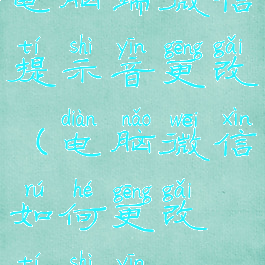 电脑端微信
tí shì yīn gēng gǎi
提示音更改
diàn nǎo wēi xìn
（电脑微信
rú hé gēng gǎi
如何更改
tí shì yīn